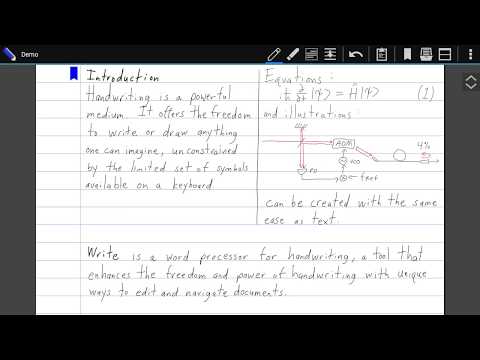 Demo
Introduction
Handwriting is a powerful
medium. It offers the freedom
to write or draw anything
one can imagine, unconstrained
by the limited set of symbols
available on a keyboard.
Equations:
iħ ∂/∂t |ψ⟩ = Ĥ|ψ⟩ (1)
and illustrations
AOM
4%
PD
VCO
fref
can be created with the same
ease as text.
Write is a word processor for handwriting, a tool that
enhances the freedom and power of handwriting with unique
ways to edit and navigate documents.